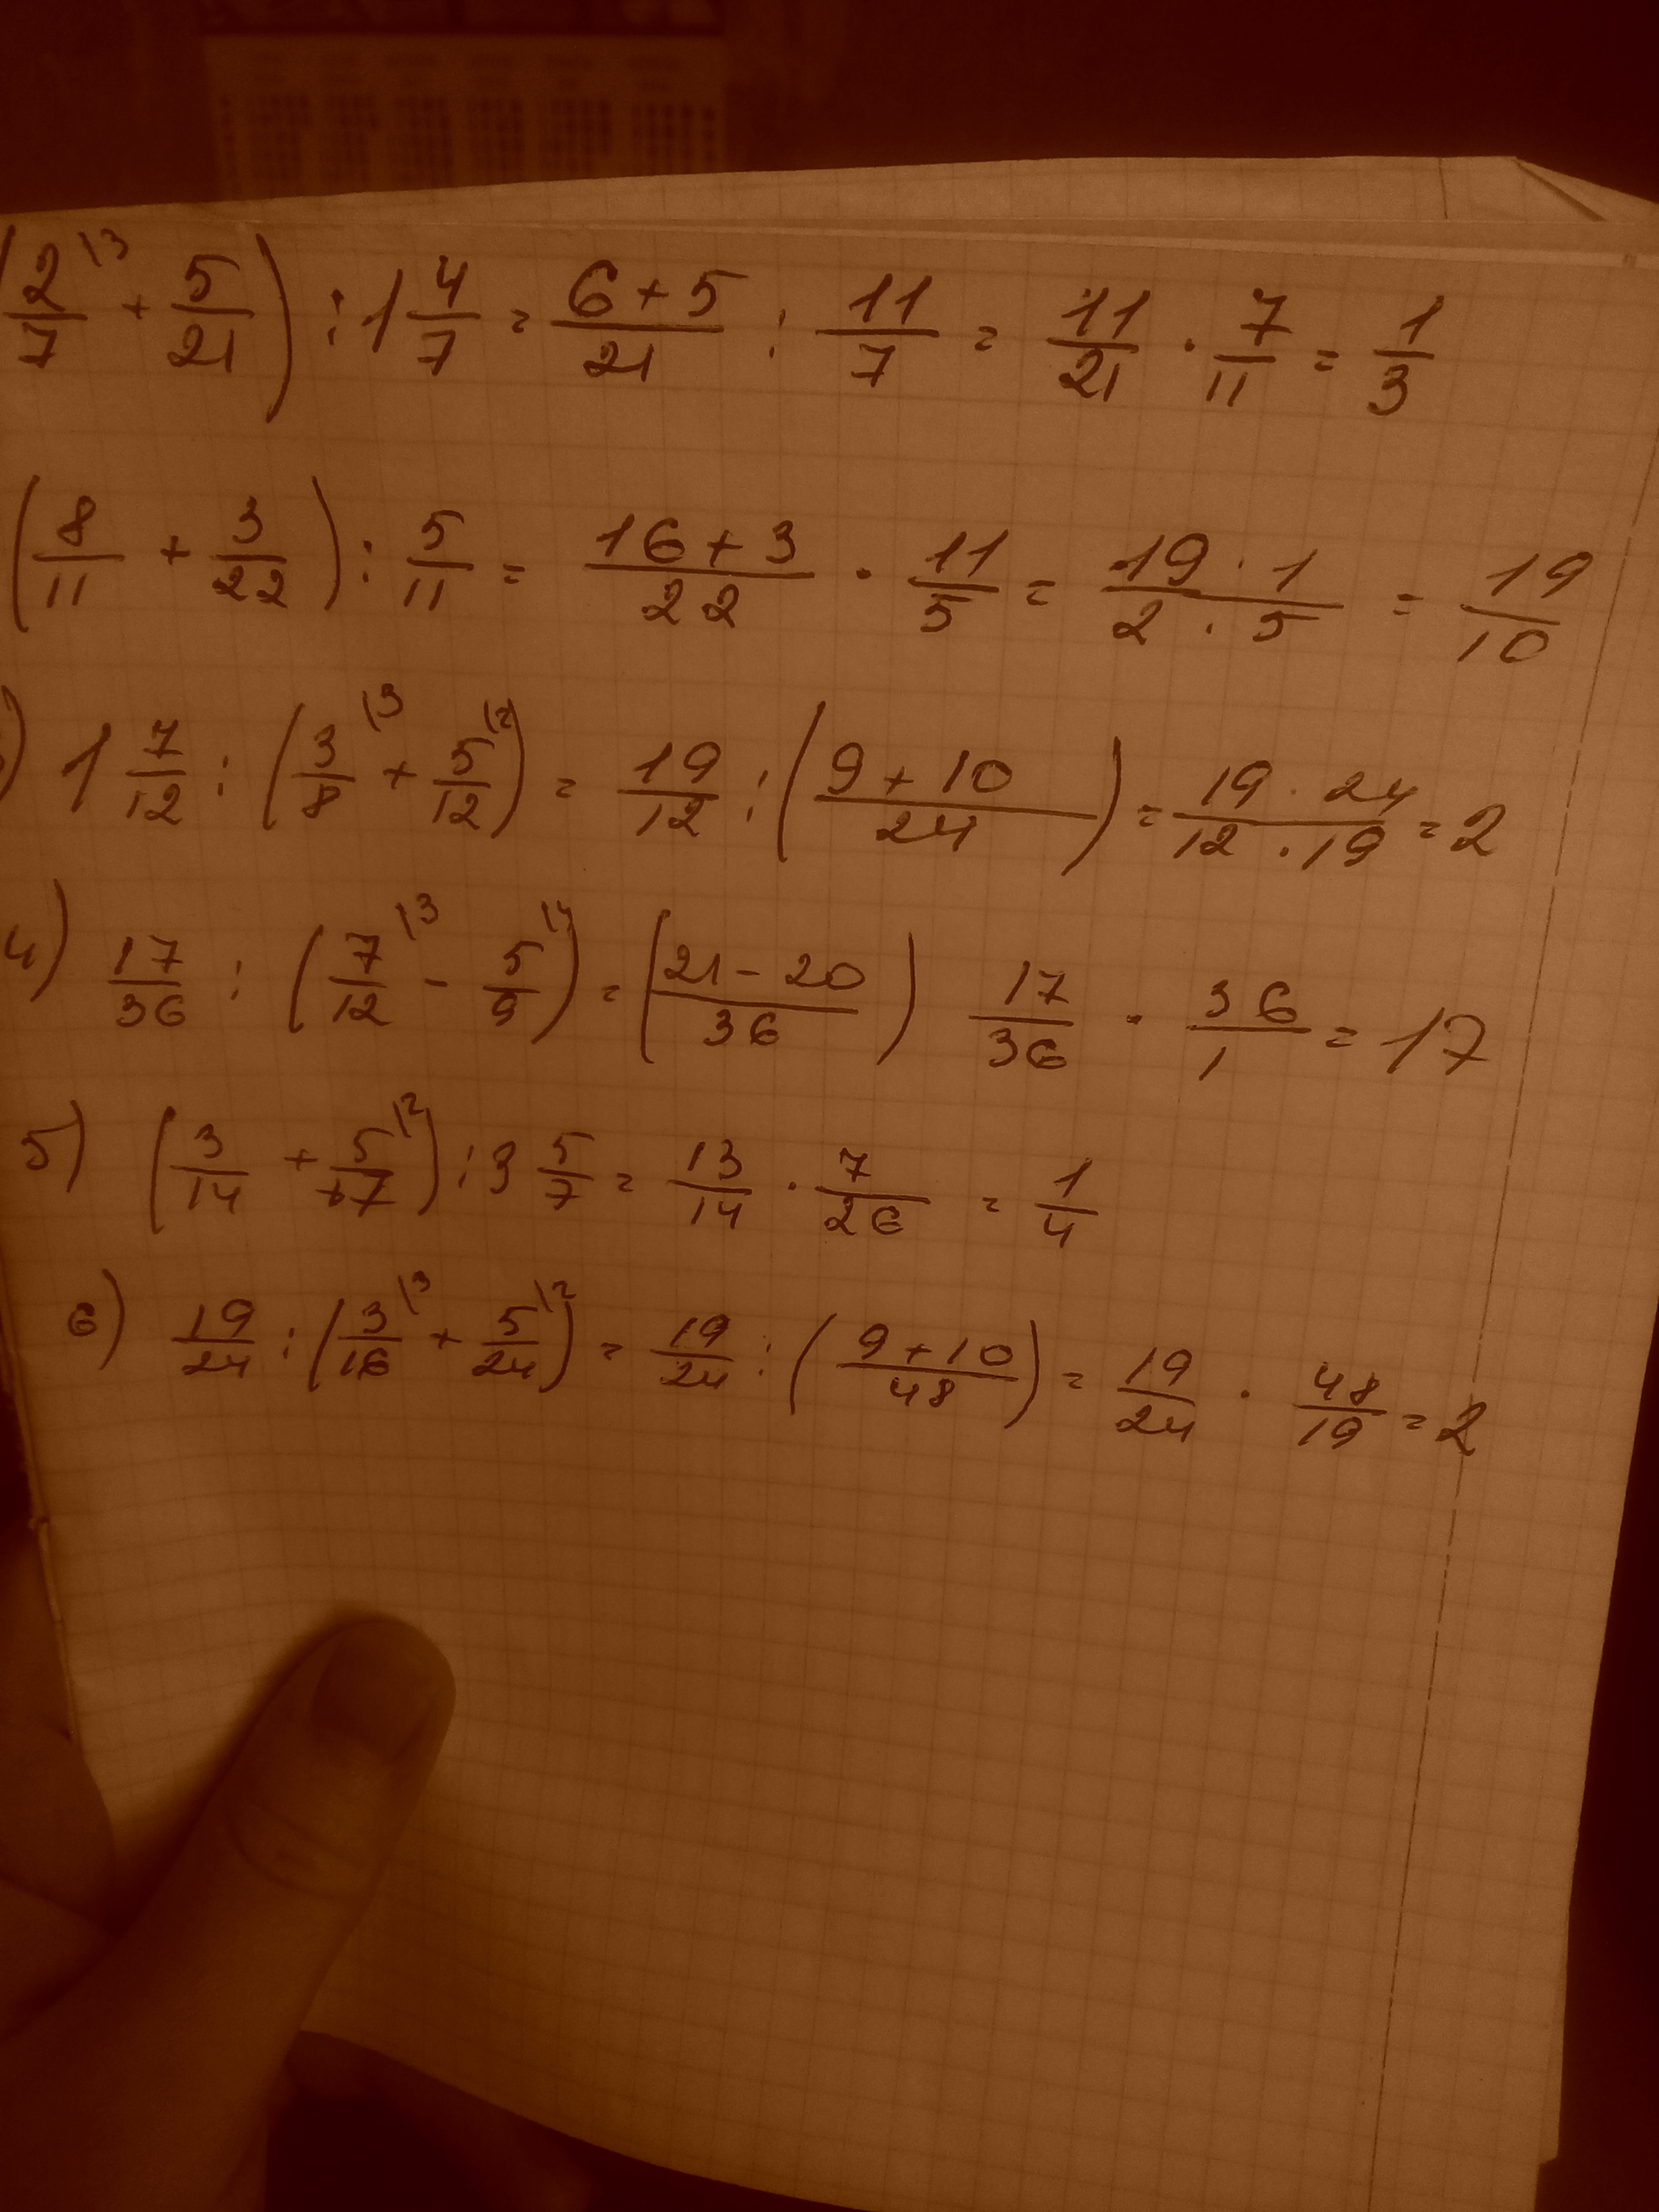 (2/7 \3 + 5/21) : 1 4/7 = 6+5/21 : 11/7 = 11/21 · 7/11 = 1/3
(8/11 + 3/22) : 5/11 = 16+3/22 · 11/5 = 19·1/2·5 = 19/10
) 1 7/12 : (3/8 \3 + 5/12 \2) = 19/12 : (9+10/24) = 19·24/12·19 = 2
4) 17/36 : (7/12 \3 - 5/9 \4) = (21-20/36) 17/36 · 36/1 = 17
5) (3/14 + 5/7 \2) : 3 5/7 = 13/14 · 7/26 = 1/4
6) 19/24 : (3/16 \3 + 5/24 \2) = 19/24 : (9+10/48) = 19/24 · 48/19 = 2